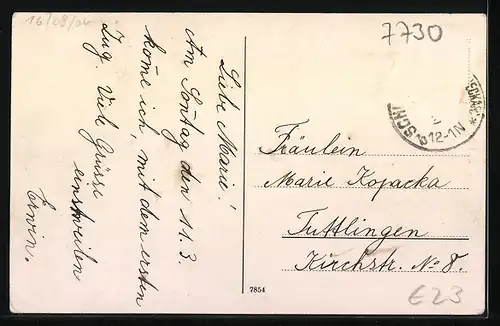 16/08/06
7730
Liebe Marie!
Am Sontag den 11.3
kome ich, mit dem ersten
Zug. Viele Grüsse
einstweilen
Erwin.
SCH
12-1N
Fräulein
Marie Kopacka
Tuttlingen
Kirchstr. No 8.
7854
€23